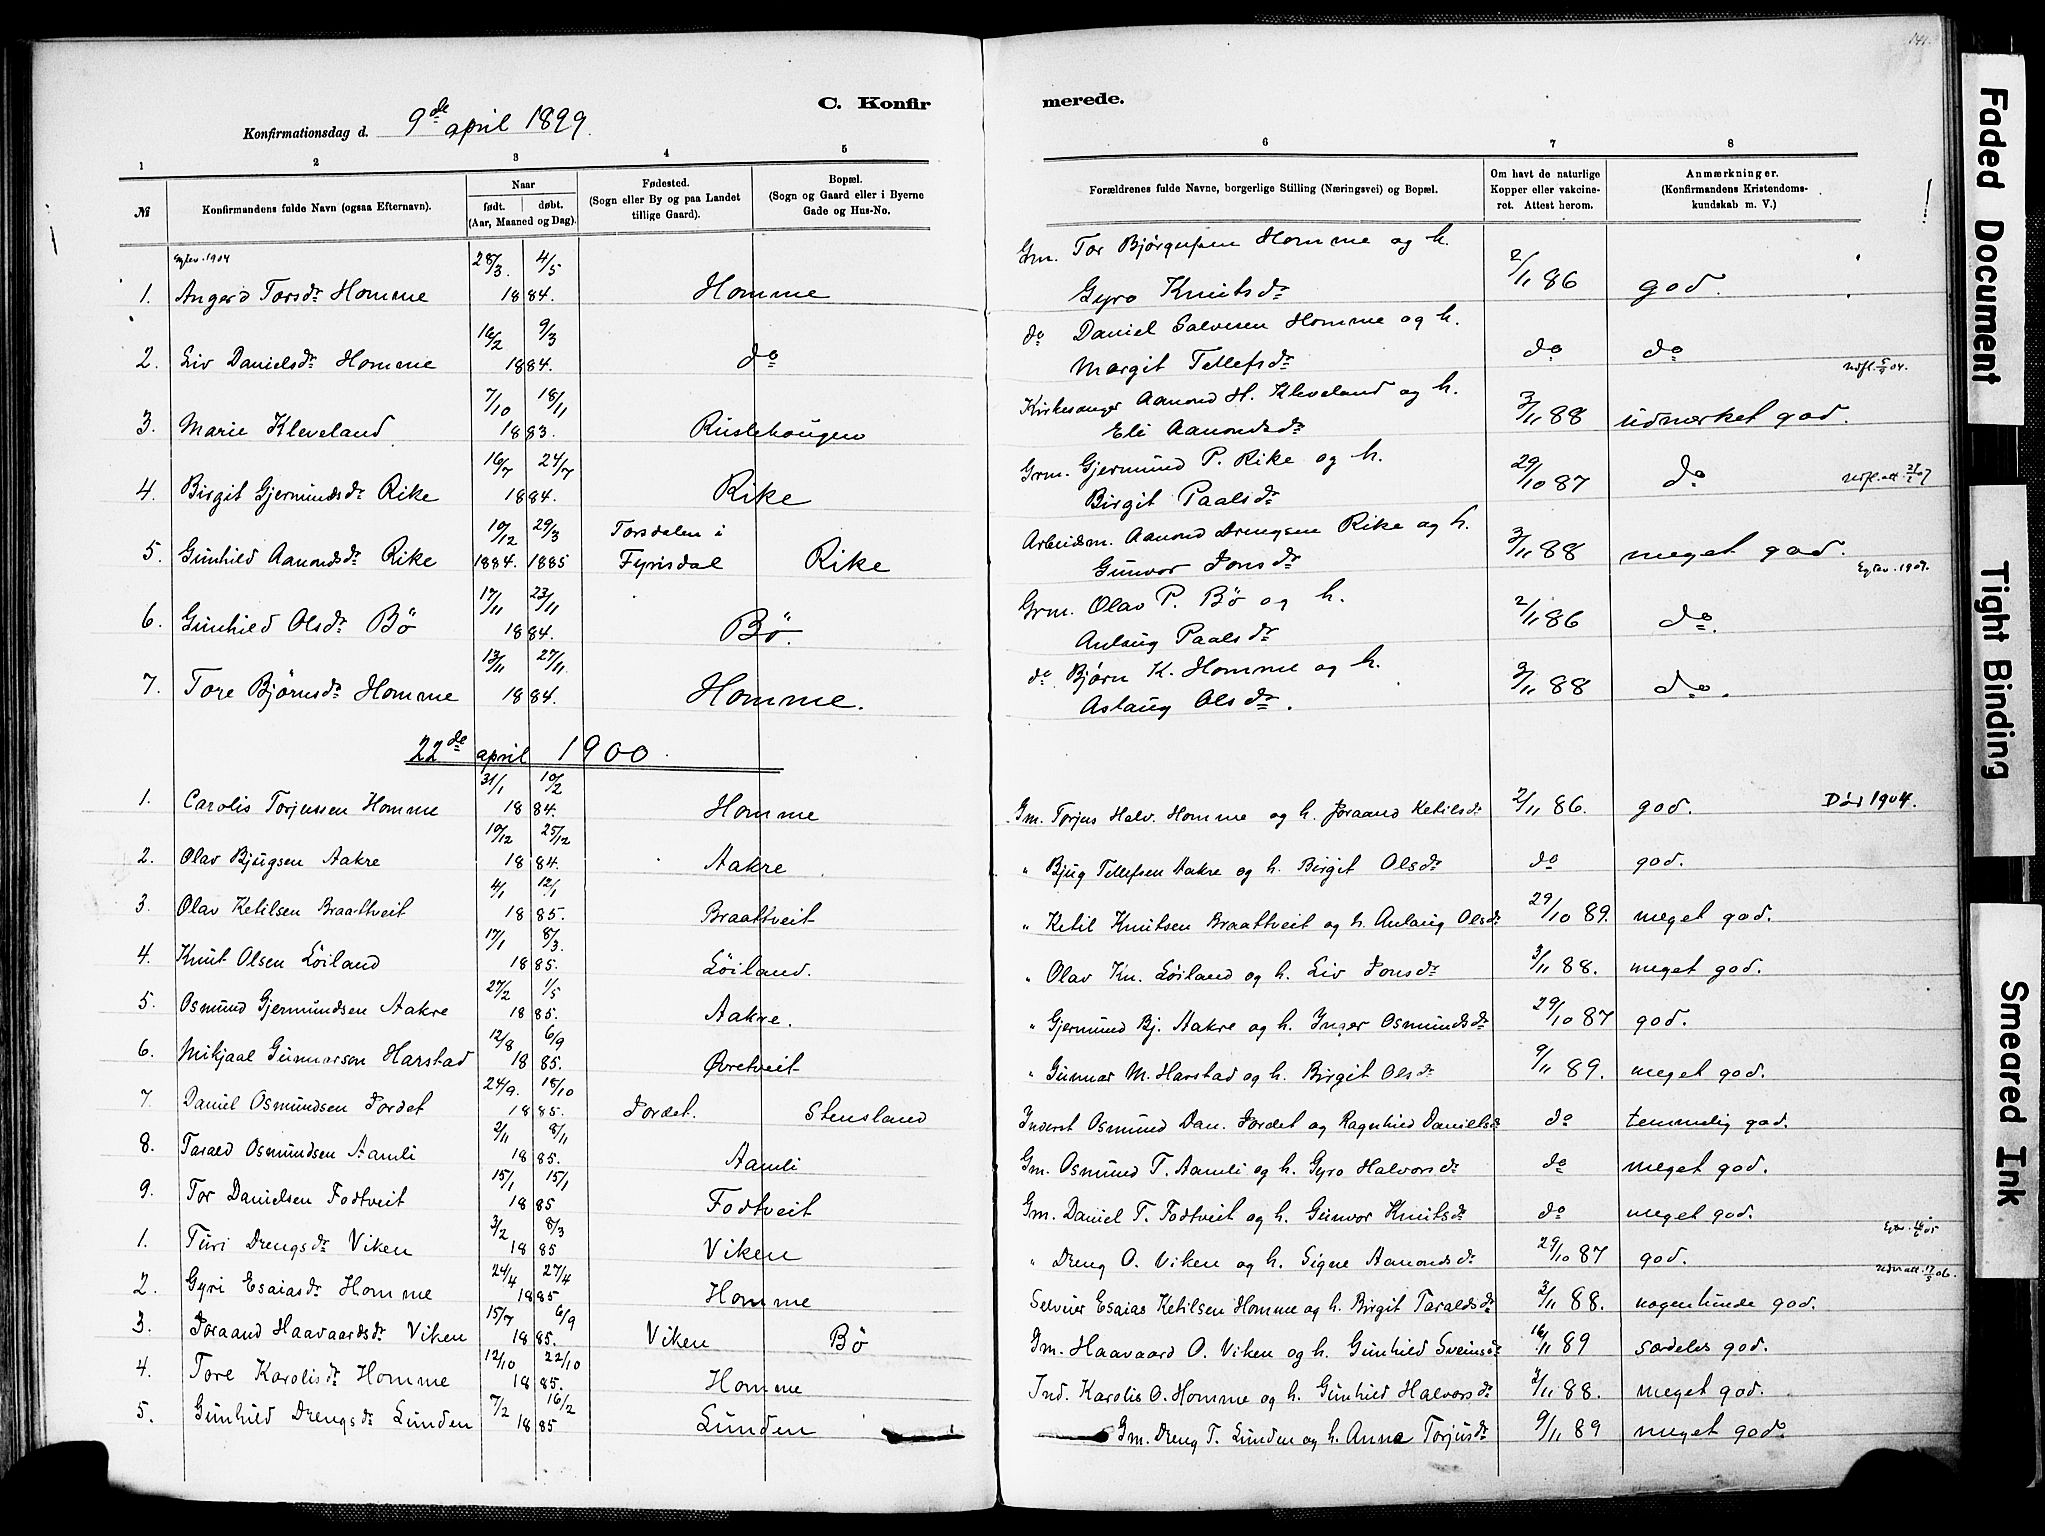 141.
C. Konfir merede.
Konfirmationsdag d. 9de april 1899.
1 2 3 4 5 6 7 8
№ Konfirmandens fulde Navn (ogsaa Efternavn). Naar født. døbt. (Aar, Maaned og Dag). Fødested. (Sogn eller By og paa Landet tillige Gaard). Bopæl. (Sogn og Gaard eller i Byerne Gade og Hus-No. Forældrenes fulde Navne, borgerlige Stilling (Næringsvei) og Bopæl. Om havt de naturlige Kopper eller vakcineret. Attest herom. Anmærkninger. (Konfirmandens Kristendomskundskab m. V.)
1. Angerd Torsdr Homme 28/3 4/5 1884. Homme Gm. Tor Bjørgufsen Homme og h. Gyro Knutsdr 2/11 86 god.
2. Liv Danielsdr Homme 16/2 9/3 1884. do do Daniel Salvesen Homme og h. Margit Tellefsdr do do
3. Marie Kleveland 7/10 18/11 1883. Rustehougen Kirkesanger Aanond H. Kleveland og h. Eli Aanondsdr 3/11 88 udmerket god.
4. Birgit Gjermundsdr Rike 16/7 24/7 1884. Rike Grm. Gjermund P. Rike og h. Birgit Paalsdr 29/10 87 do
5. Gunhild Aanondsdr Rike 10/12 1884. 29/3 1885 Torsdalen i Fyrisdal Rike Arbeidsm. Aanond Drengsen Rike og h. Gunvor Jonsdr 3/11 88 meget god.
6. Gunhild Olsdr Bö 17/11 23/11 1884. Bö. Grm. Olav P. Bö og h. Anlaug Paalsdr 2/11 86 do.
7. Tore Bjørnsdr Homme 13/11 27/11 1884. Homme. do Bjørn K. Homme og h. Aslaug Olsdr. 3/11 88 do.
22de april 1900
1. Carolis Torjussen Homme 31/1 10/2 1884. Homme Gm. Torjus Halv. Homme og h. Joraand Ketilsdr 2/11 86. god. Död 1904.
2. Olav Bjugsen Aakre 10/12 25/12 1884. Aakre " Bjug Tellefsen Aakre og h. Birgit Olsdr do god.
3. Olav Ketilsen Braattveit 4/1 12/1 1885. Braattveit " Ketil Knutsen Braattveit og h. Anlaug Olsdr 29/10 89. meget god.
4. Knut Olsen Löiland 17/1 8/3. 1885. Löiland. " Olav Kn. Löiland og h. Liv Jonsdr 3/11 88. meget god.
5. Osmund Gjermundsen Aakre 27/2 1/5 1885. Aakre. " Gjermund Bj. Aakre og h. Inger Osmundsdr 29/10 87 god.
6. Mikjaal Gunnarson Harstad 12/8 6/9 1885. Øvretveit " Gunnar M. Harstad og h. Birgit Olsdr 9/11 89. meget god.
7. Daniel Osmundsen Jordet 24/9. 18/10 1885. Jordet. Stensland Inderst Osmund Dan. Jordet og Ragnhild Danielsdr do temmelig god.
8. Tarald Osmundsen Aamli 2/11 8/11 1885. Aamli Gm. Osmund T. Aamli og h. Gyro Halvorsdr do meget god.
9. Tor Danielsen Fodtveit 15/1 15/1 1885 Fodtveit Gm. Daniel T. Fodtveit og h. Gunvor Knutsdr do meget god.
1. Turi Drengsdr Viken 3/2 8/3 1885 Viken " Dreng O. Viken og h. Signe Aanondsdr 29/10 87 god.
2. Gyri Esaiasdr Homme 24/4 27/4 1885 Homme Selveier Esaias Ketilsen Homme og h. Birgit Taraldsdr 3/11 88. nogenlunde god.
3. Joraand Haavaardsdr Viken 15/7 6/9 1885. Viken Bö Gm. Haavaard O. Viken og h. Gunhild Sveinsdr 16/11 89 særdeles god.
4. Tore Karolisdr Homme 12/10 22/10 1885. Homme Ind. Karolis O. Homme og h. Gunhild Halvorsdr 3/11 88. meget god.
5. Gunhild Drengsdr Lunden 7/2 16/2 1885 Lunden Gm. Dreng T. Lunden og h. Anne Torjusdr 9/11 89 meget god.
Faded Document
Tight Binding
Smeared Ink